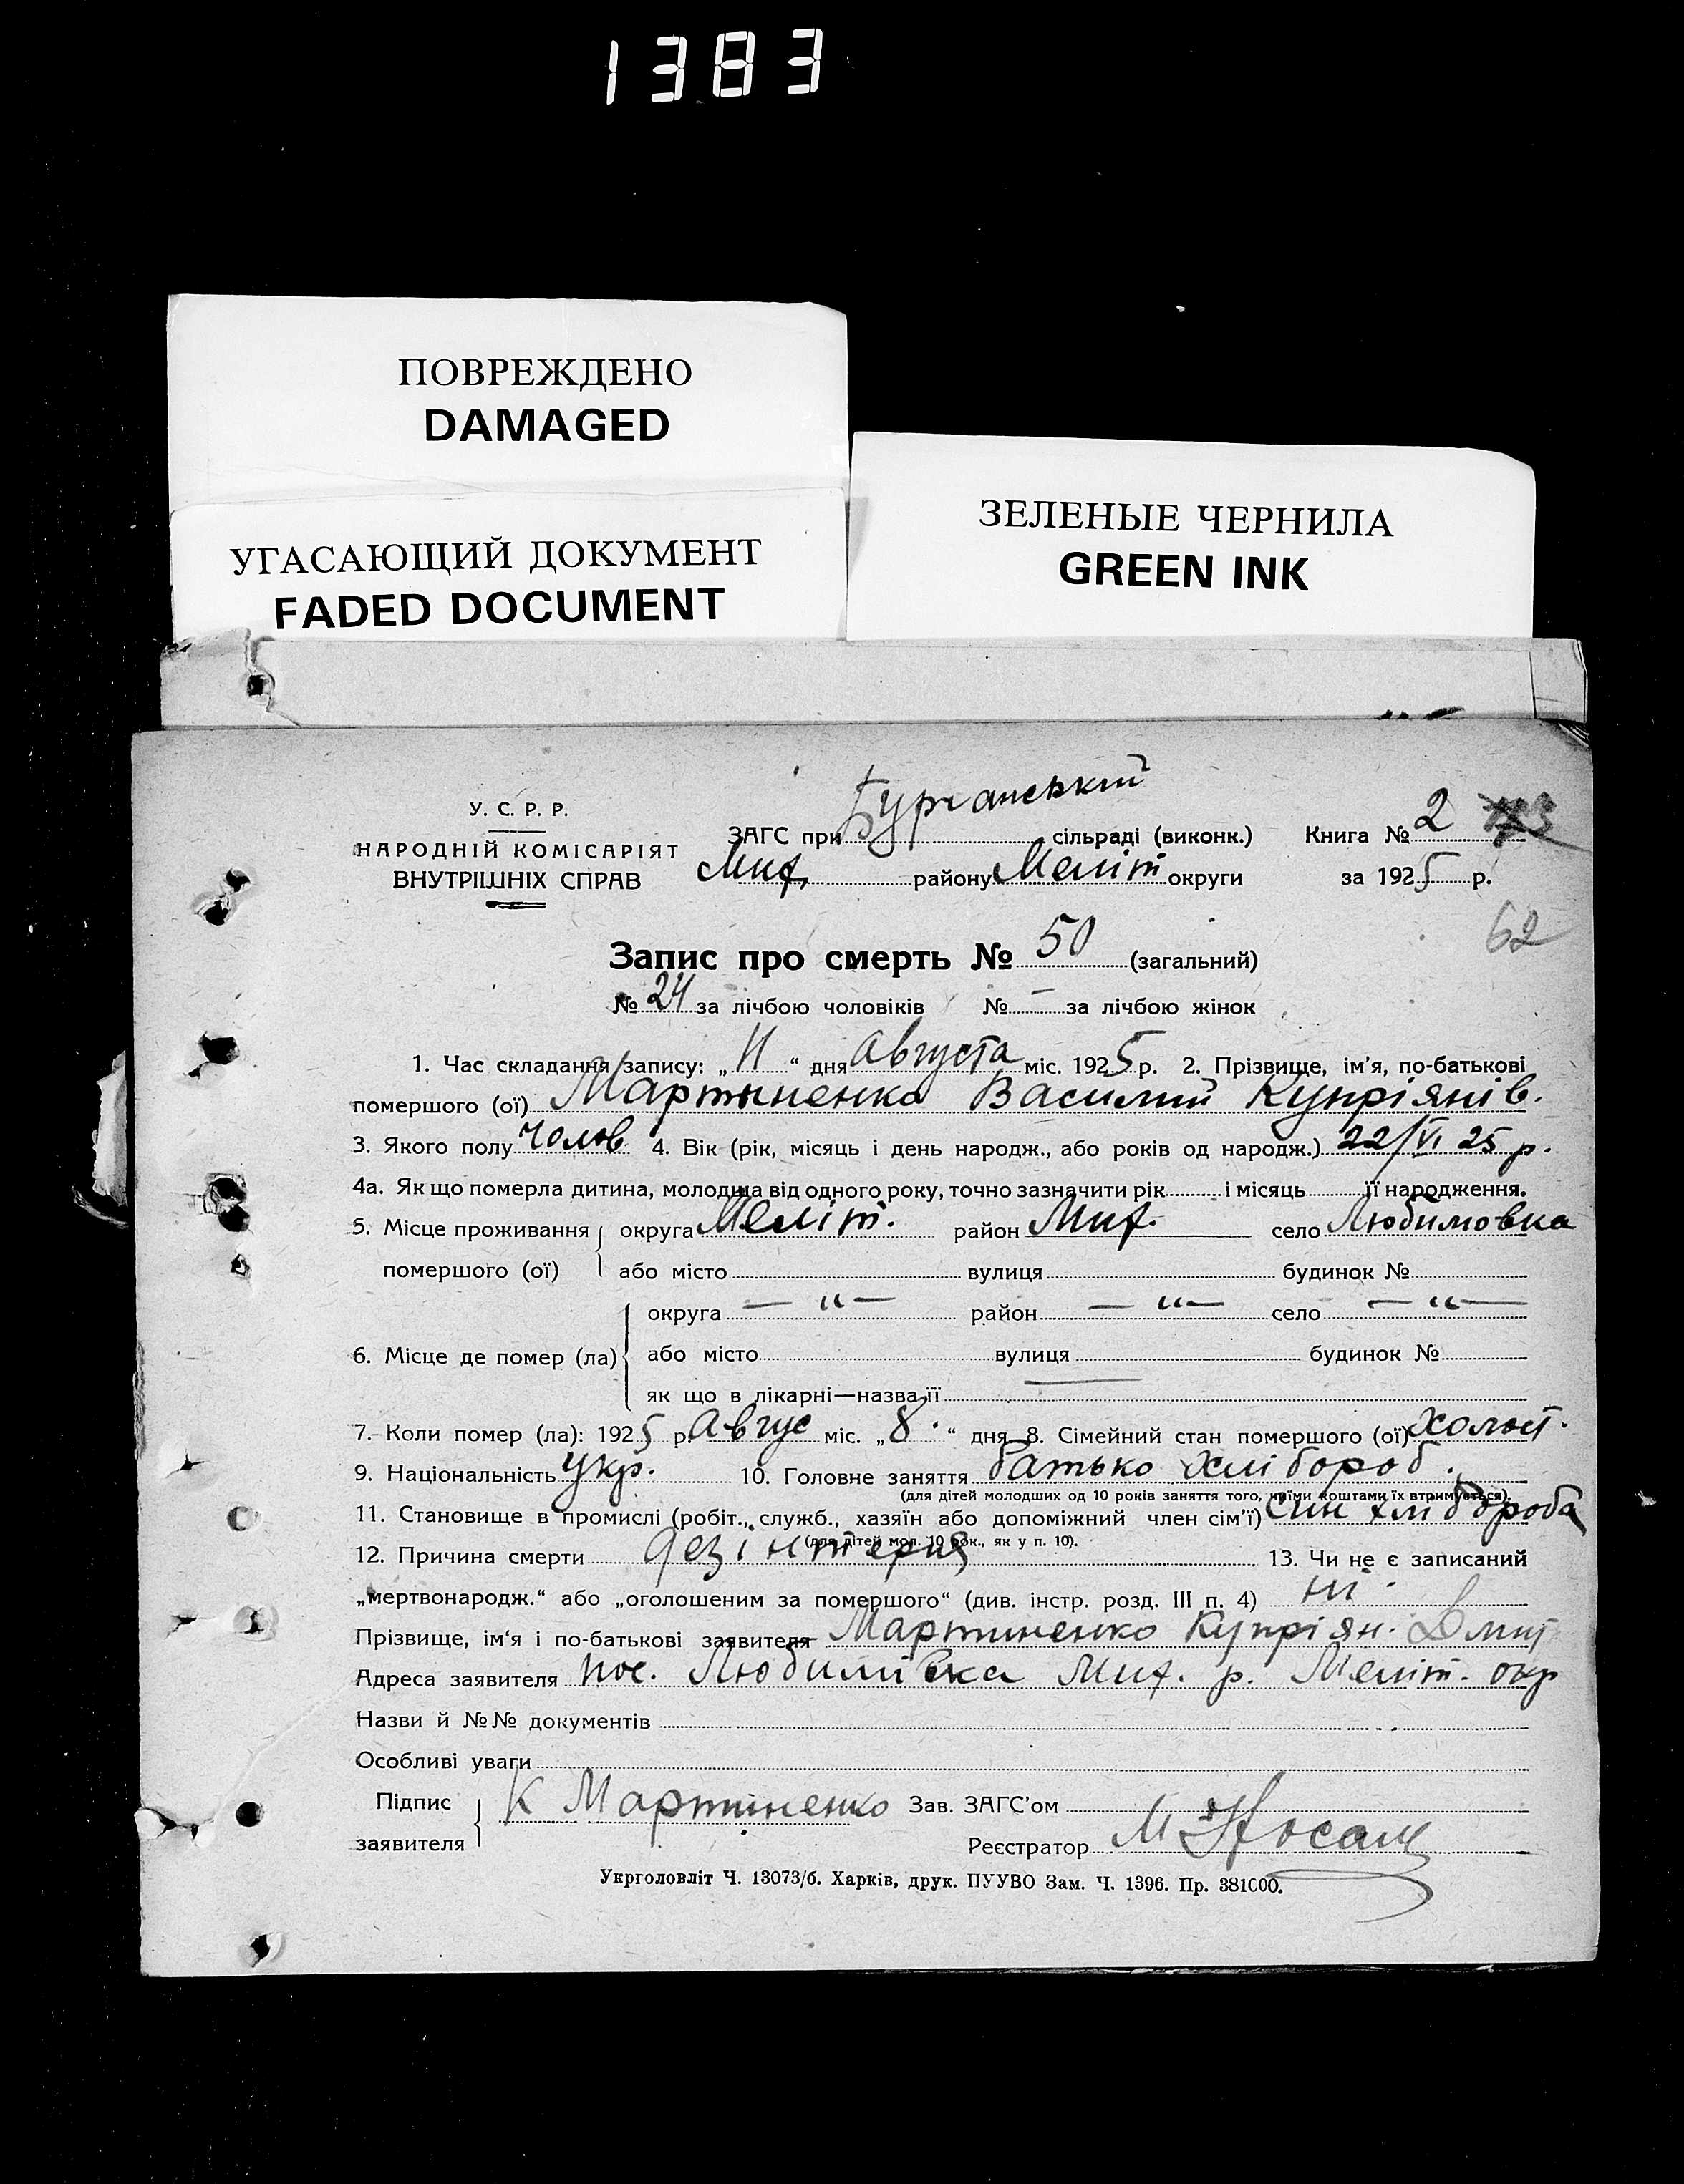 1383
ПОВРЕЖДЕНО
DAMAGED
УГАСАЮЩИЙ ДОКУМЕНТ
FADED DOCUMENT
ЗЕЛЕНЫЕ ЧЕРНИЛА
GREEN INK
У. С. Р. Р.
НАРОДНІЙ КОМІСАРІЯТ
ВНУТРІШНІХ СПРАВ
ЗАГС при сільраді (виконк.)
Мих. району Меліт округи
Книга № 2
за 1925 р.
62
Запис про смерть № 50 (загальний)
№ 24 за лічбою чоловіків № — за лічбою жінок
1. Час складання запису: „ 11 “ дня Августа міс. 1925 р. 2. Прізвище, ім'я, по-батькові
помершого (ої) Мартыненко Василий Купріянів.
3. Якого полу Чолов. 4. Вік (рік, місяць і день народж., або років од народж.) 22/VI 25 р.
4а. Як що померла дитина, молодша від одного року, точно зазначити рік і місяць її народження.
5. Місце проживання помершого (ої) округа Меліт. район Мих. село Любимовка
або місто вулиця будинок №
6. Місце де помер (ла) округа — „ — район — „ — село — „ —
або місто вулиця будинок №
як що в лікарні—назва її
7. Коли помер (ла): 1925 р. Авгус міс. „ 8. “ дня 8. Сімейний стан помершого (ої) холост.
9. Національність укр. 10. Головне заняття батько хлібороб.
(для дітей молодших од 10 років заняття того, чиїми коштами їх втримується).
11. Становище в промислі (робіт., служб., хазяїн або допоміжний член сім'ї) син хлібороба
(для дітей мол. 10 рок., як у п. 10).
12. Причина смерти дезінтерия 13. Чи не є записаний
„мертвонародж.“ або „оголошеним за помершого“ (див. інстр. розд. III п. 4) ні.
Прізвище, ім'я і по-батькові заявителя Мартиненко Купріян. Дмит
Адреса заявителя пос. Любимівка Мих. р. Меліт. окр
Назви й №№ документів
Особливі уваги
Підпис заявителя К Мартиненко Зав. ЗАГС'ом
Реєстратор М
Укрголовліт Ч. 13073/б. Харків, друк. ПУУВО Зам. Ч. 1396. Пр. 381000.